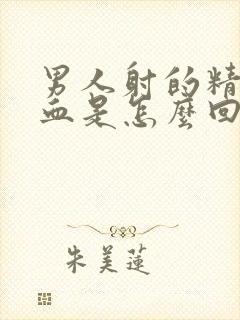 男人射的精
血是怎麼回
朱美蓮